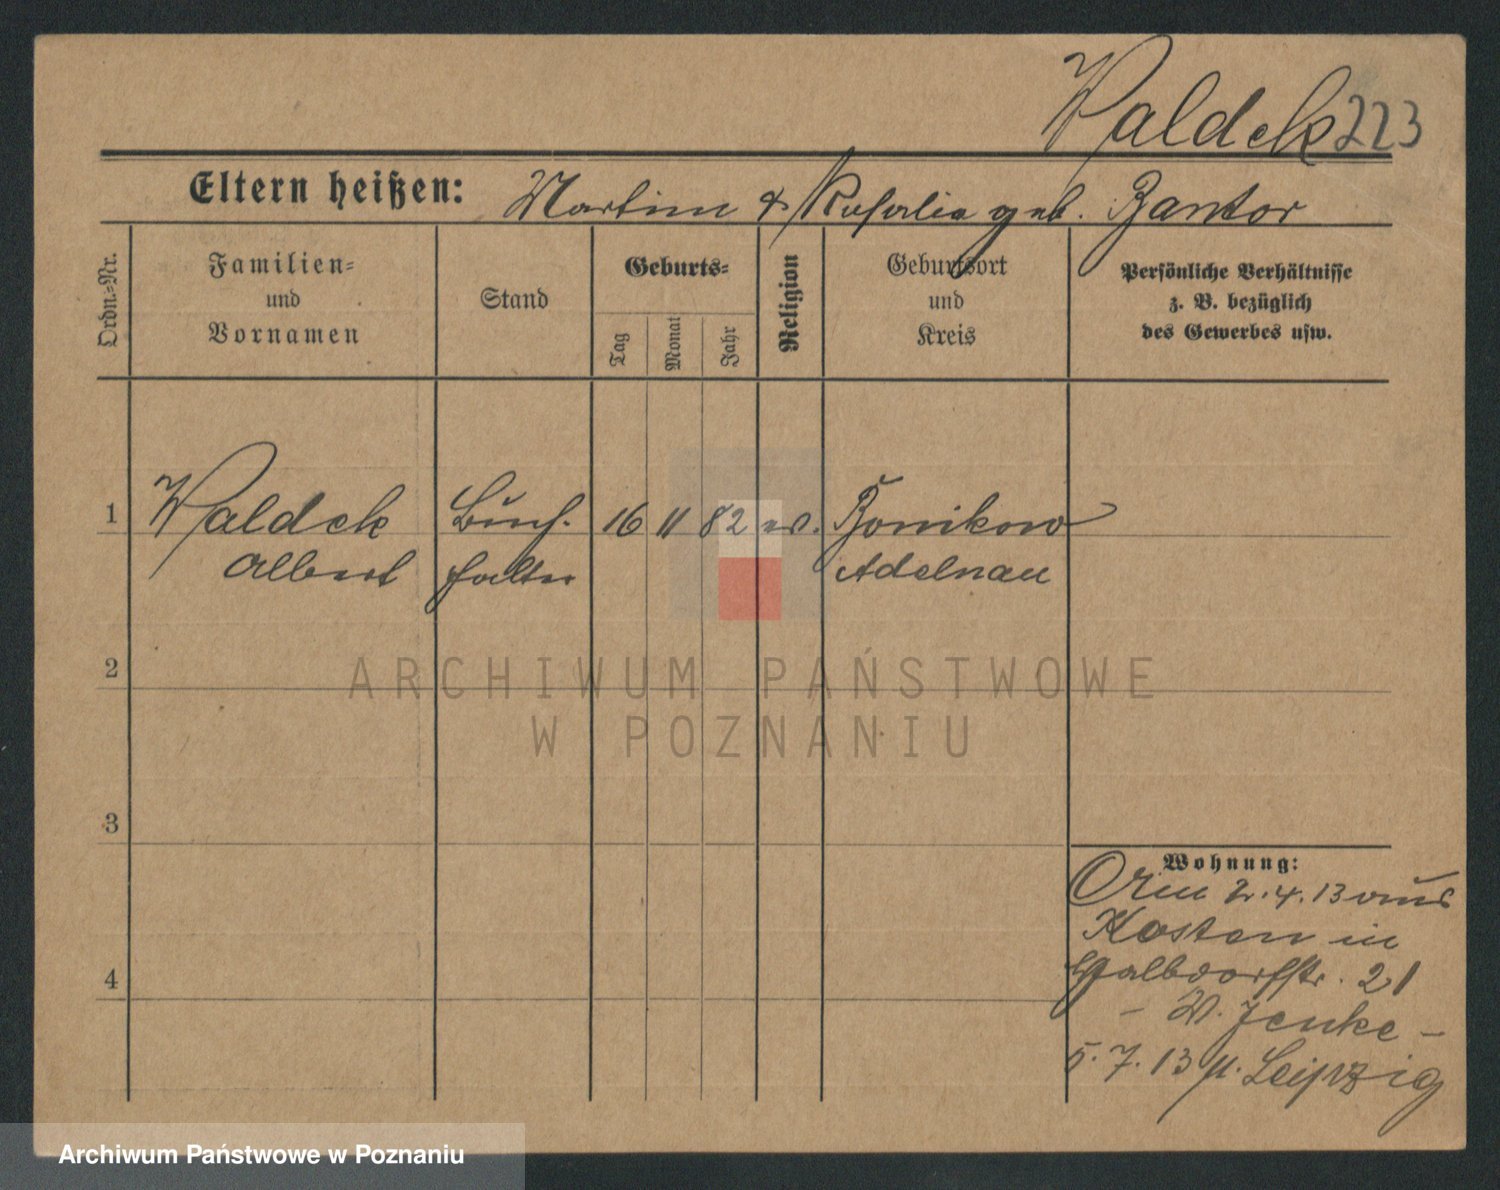 Waldek 223
Eltern heißen: Martin & Rosalie geb. Bantor
Ordn.-Nr.
Familien-
und
Vornamen
Stand
Geburts-
Tag
Monat
Jahr
Religion
Geburtsort
und
Kreis
Persönliche Verhältnisse
z. B. bezüglich
des Gewerbes usw.
1 Waldek Buch- 16 11 82 ev. Bonikow
Albert halter Adelnau
2
ARCHIWUM PAŃSTWOWE
W POZNANIU
3
Wohnung:
2.4.13 aus
Kosten in
21
- W. Jenke -
5.7.13 n. Leipzig
4
Archiwum Państwowe w Poznaniu